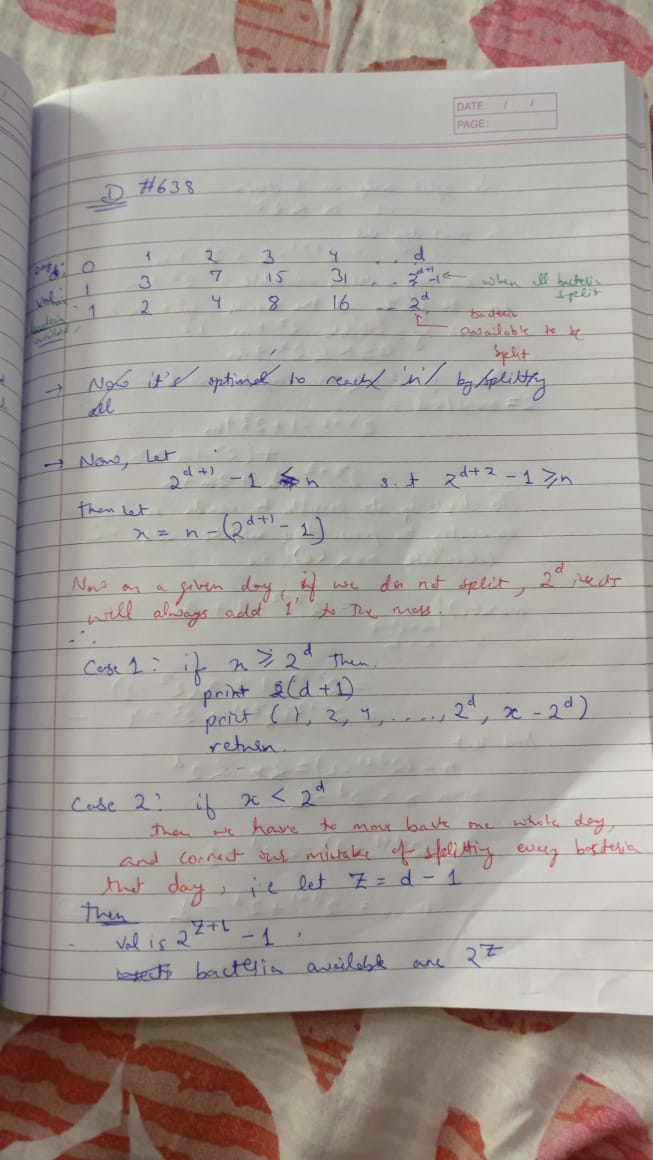 DATE: / /
PAGE:
D #638
Day d: 0 1 2 3 4 .. d
val: 1 3 7 15 31 .. 2^{d+1}-1 ← when all bacteria split
bacteria available 1 2 4 8 16 .. 2^d
bacteria available to be split
→ Now it's optimal to reach 'n' by splitting
all
→ Now, Let
2^{d+1} - 1 ≤ n s.t 2^{d+2} - 1 ≥ n
then let
x = n - (2^{d+1} - 1)
Now on a given day, if we do not split, 2^d
will always add '1' to the mass.
∴
Case 1: if x ≥ 2^d then.
print (d+1)
print (1, 2, 4, ....., 2^d, x - 2^d)
return.
Case 2: if x < 2^d
then we have to move back one whole day,
and correct our mistake of splitting every bacteria
that day, i.e let Z = d - 1
Then
val is 2^{Z+1} - 1
bacteria available are 2^Z